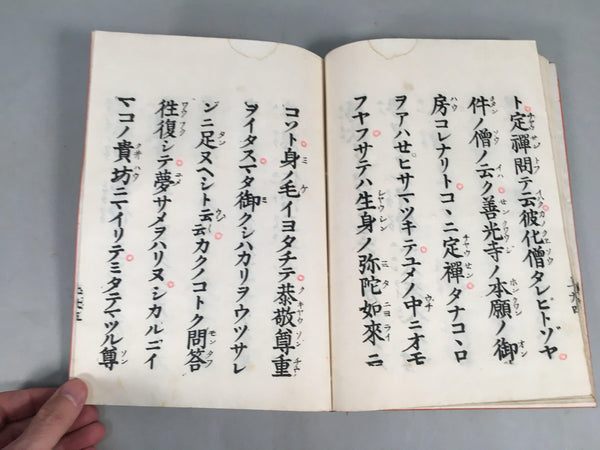 ト定禪問テ云彼化僧タレビトゾヤ
件ノ僧ノ云ク善光寺ノ本願ノ御
房コレナリトコヽニ定禪タナコヽロ
ヲアハせヒサマツキテユメノ中ニオモ
フヤフサテハ生身ノ弥陀如來ニ
コソト身ノ毛イヨタチテ恭敬尊重
ヲイタスマタ御クシハカリヲウツサレ
ンニ足ヌヘシト云云カクノコトク問答
徃復シテ夢サメヲハリヌシカルニイ
マコノ貴坊ニマイリテミタテマツル尊